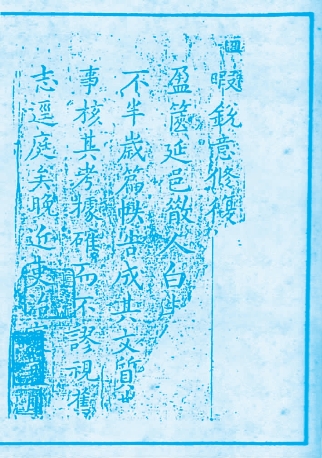 暇銳意修復
盈篋延邑徵人白
不半歲篇帙告成其文質
事核其考據確而不謬視舊
志逕庭矣晚近史